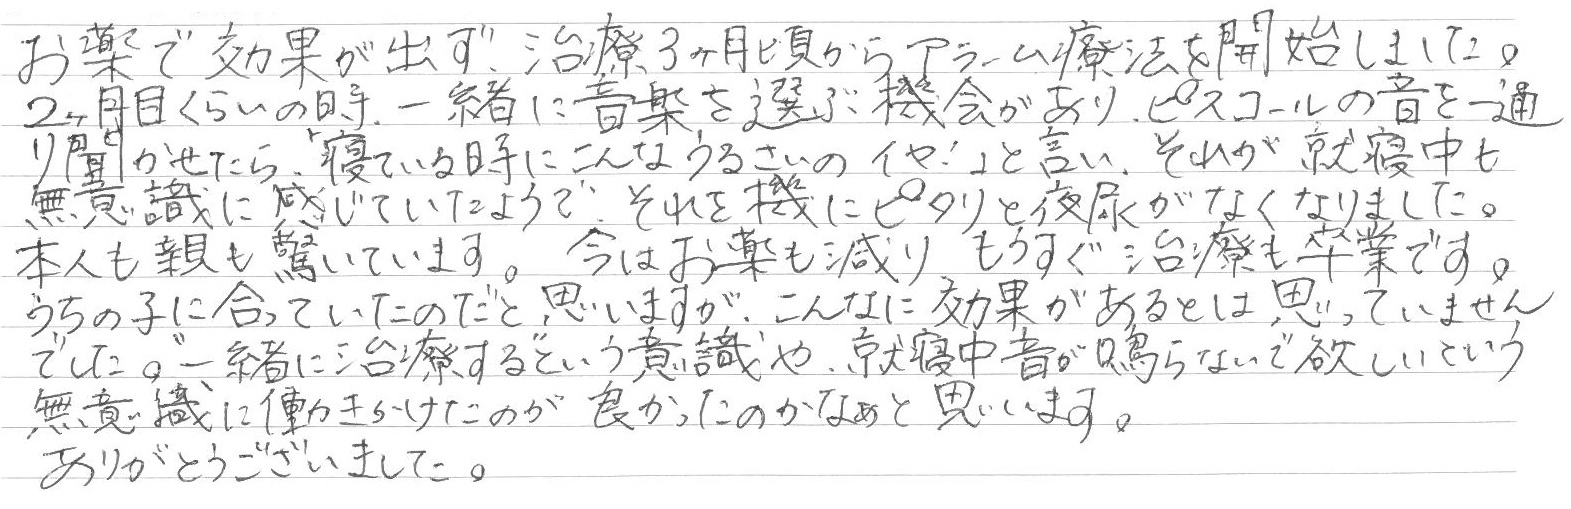 お薬で効果が出ず、治療3ヶ月頃からアラーム療法を開始しました。
2ヶ月目くらいの時、一緒に音楽を選ぶ機会があり、ピスコールの音を一通
り聞かせたら、「寝ている時にこんなうるさいのイヤ!」と言い、それが就寝中も
無意識に感じていたようで、それを機にピタリと夜尿がなくなりました。
本人も親も驚いています。今はお薬も減り もうすぐ治療も卒業です。
うちの子に合っていたのだと思いますが、こんなに効果があるとは思っていません
でした。"一緒に治療する"という意識や、就寝中音が鳴らないで欲しいという
無意識に働きかけたのが良かったのかなぁと思います。
ありがとうございました。